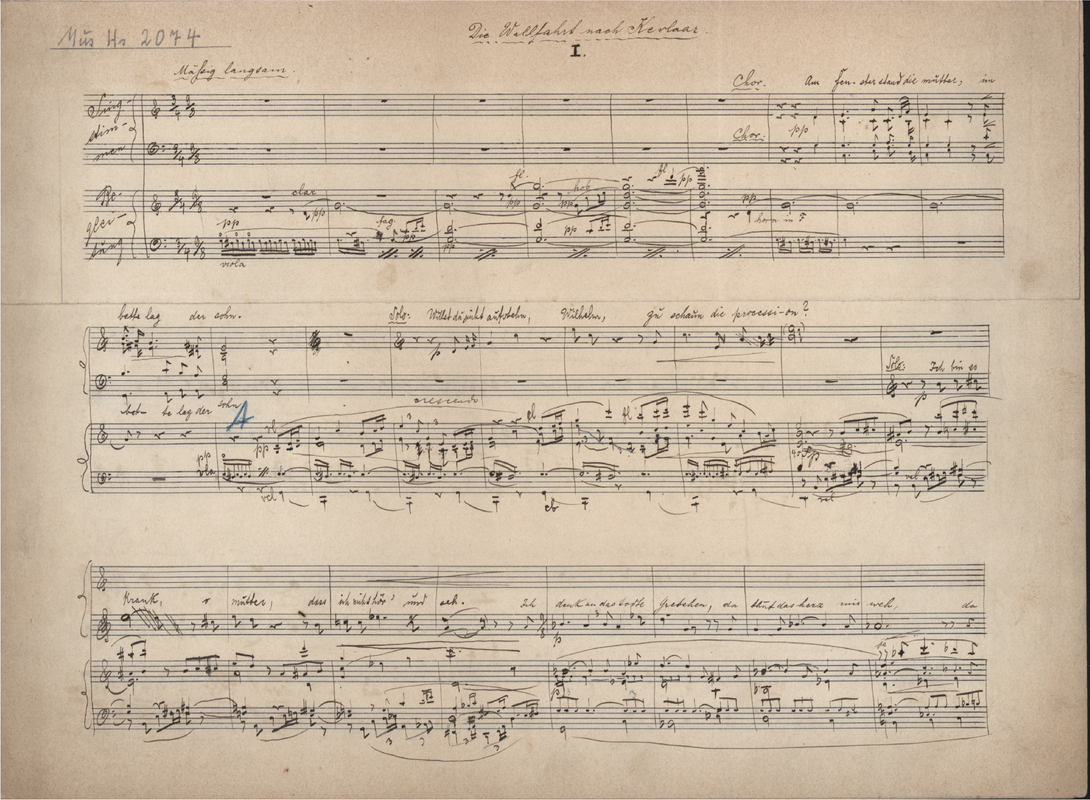 Mus Hs 2074
Die Wallfahrt nach Kevlaar.
I.
Mäßig langsam.
Chor. Am Fen-ster stand die mutter, im
Sing-
stim-
men
Chor. pp
Be-
glei-
tung
pp
viola
clar
pp
fag.
pp
fl.
pp
hob
pp
fl pp
pp
horn in F
bette lag der sohn. Solo: Willst du nicht aufstehn, Wilhelm, zu schaun die processi-on?
p
Solo: Ich bin so
p
bet- te lag der sohn
A
crescendo
pp
pp
vcl
fl
vcl
krank, o mutter, dass ich nicht hör' und seh. Ich denk an das todte Gretchen, da thut das herz mir weh, da
p
3
3
3